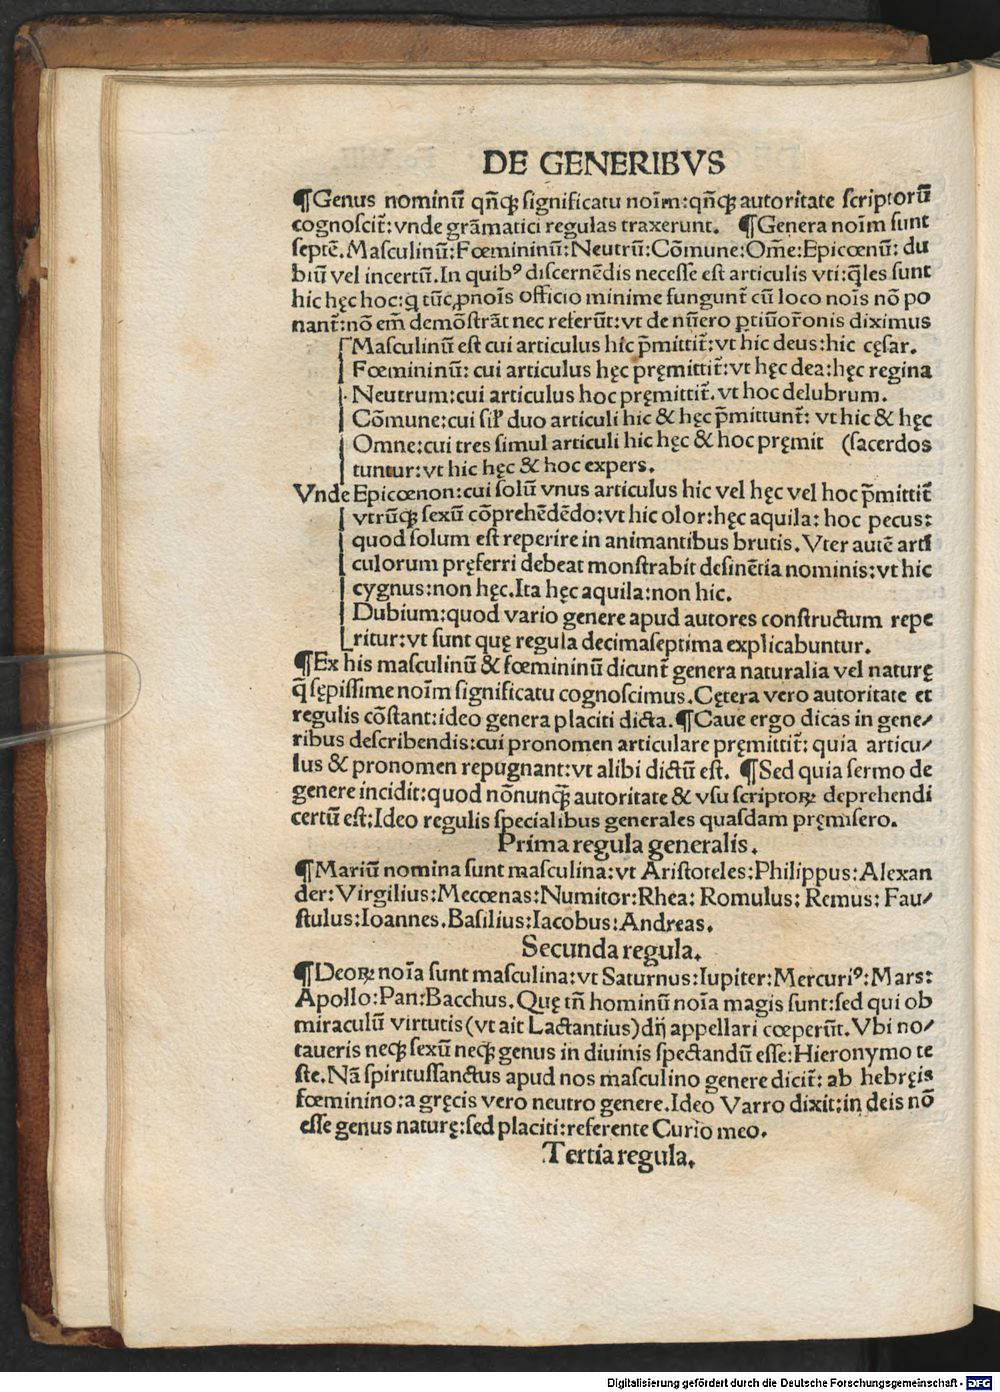 DE GENERIBVS
¶Genus nominū qñq; significatu noīm:qñq; autoritate scriptorū
cognoscit᷑:vnde grāmatici regulas traxerunt. ¶Genera noīm sunt
septē.Masculinū:Fœmininū:Neutrū:Cōmune:Om̄e:Epicœnū: du
biū vel incertū.In quibꝰ discernēdis necesse est articulis vti:q̄les sunt
hic hęc hoc:q tūc ꝓnoīs officio minime fungunt᷑ cū loco noīs nō po
nant᷑:nō em̄ demōstrāt nec referūt:vt de nūero ꝑtiū or̄onis diximus
Masculinū est cui articulus hic p̄mittit᷑:vt hic deus:hic cęsar.
Fœmininū: cui articulus hęc pręmittit᷑:vt hęc dea:hęc regina
Neutrum:cui articulus hoc pręmittit᷑. vt hoc delubrum.
Cōmune:cui sil̄ duo articuli hic & hęc p̄mittunt᷑: vt hic & hęc
Omne:cui tres simul articuli hic hęc & hoc pręmit (sacerdos
tuntur:vt hic hęc & hoc expers.
Vnde Epicœnon:cui solū vnus articulus hic vel hęc vel hoc p̄mittit᷑
vtrūq; sexū cōprehēdēdo:vt hic olor:hęc aquila: hoc pecus:
quod solum est reperire in animantibus brutis.Vter autē arti
culorum pręferri debeat monstrabit desinētia nominis:vt hic
cygnus:non hęc.Ita hęc aquila:non hic.
Dubium:quod vario genere apud autores constructum repe
ritur:vt sunt quę regula decimaseptima explicabuntur.
¶Ex his masculinū & fœmininū dicunt᷑ genera naturalia vel naturę
q̄ sępissime noīm significatu cognoscimus.Cętera vero autoritate et
regulis cōstant:ideo genera placiti dicta.¶Caue ergo dicas in gene/
ribus describendis:cui pronomen articulare pręmittit᷑: quia articu/
lus & pronomen repugnant:vt alibi dictū est. ¶Sed quia sermo de
genere incidit:quod nōnunq̄ autoritate & vsu scriptoꝝ deprehendi
certū est:Ideo regulis specialibus generales quasdam pręmisero.
Prima regula generalis.
¶Mariū nomina sunt masculina:vt Aristoteles:Philippus:Alexan
der:Virgilius:Mecœnas:Numitor:Rhea: Romulus: Remus: Fau/
stulus:Ioannes.Basilius:Iacobus:Andreas.
Secunda regula.
¶Deoꝝ noīa sunt masculina:vt Saturnus:Iupiter:Mercuriꝰ:Mars:
Apollo:Pan:Bacchus.Quę tn̄ hominū noīa magis sunt:sed qui ob
miraculū virtutis(vt ait Lactantius)dij appellari cœperūt.Vbi no/
taueris neq; sexū neq; genus in diuinis spectandū esse:Hieronymo te
ste.Nā spiritussanctus apud nos masculino genere dicit᷑: ab hebręis
fœminino:a gręcis vero neutro genere.Ideo Varro dixit:in deis nō
esse genus naturę:sed placiti:referente Curio meo.
Tertia regula.
Digitalisierung gefördert durch die Deutsche Forschungsgemeinschaft - DFG